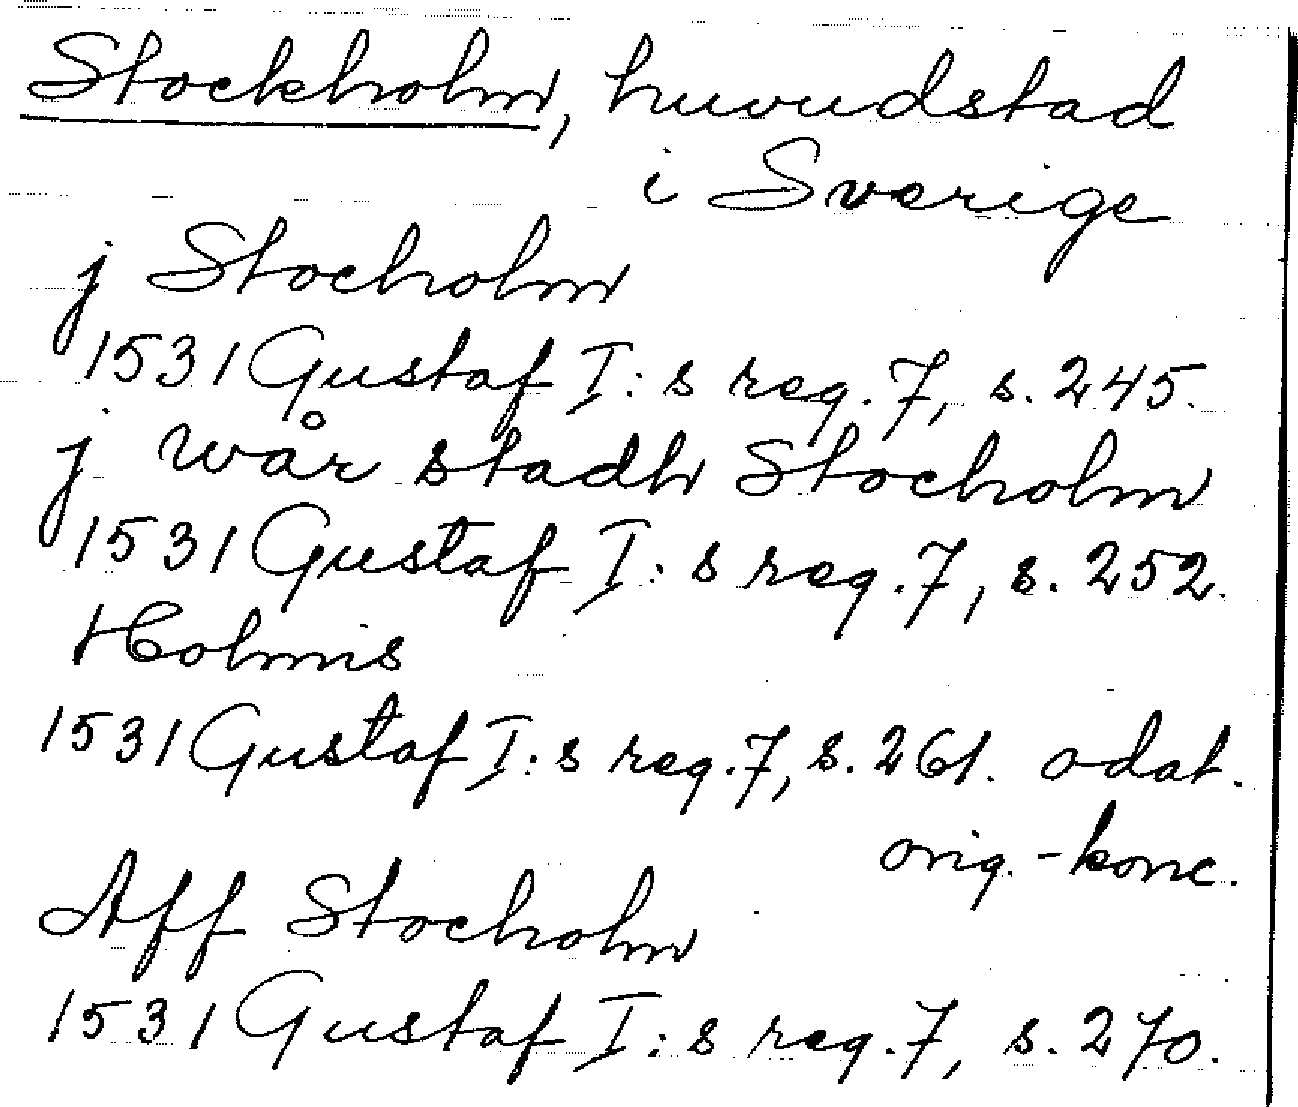 Stockholm, huvudstad
i Sverige
j Stocholm
1531 Gustaf I:s reg. 7, s. 245.
j wår stadh Stocholm
1531 Gustaf I:s reg. 7, s. 252.
Holmis
1531 Gustaf I:s reg. 7, s. 261. odat.
orig.-konc.
Aff Stocholm
1531 Gustaf I:s reg. 7, s. 270.